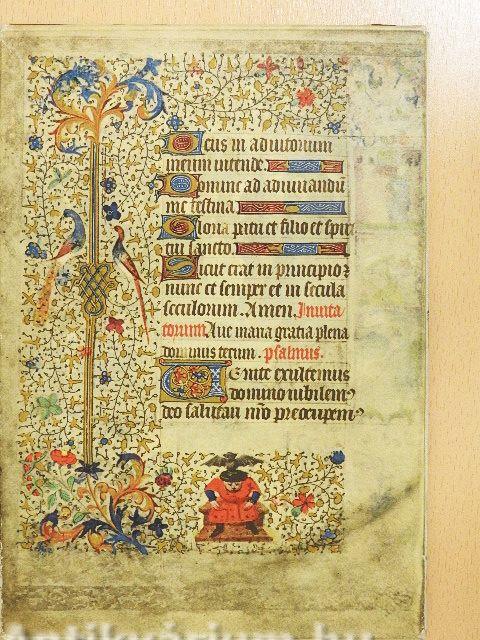 Deus in adiutorium
meum intende.
Domine ad adiuuandū
me festina.
Gloria patri et filio et spiri
tui sancto.
Sicut erat in principio et
nunc et semper et in secula
seculorum. Amen. Inuita
torium. Aue maria gratia plena
dominus tecum. psalmus.
Venite exultemus
domino iubilem9
deo salutari nr̄o preocupem9
Antikvarium.hu